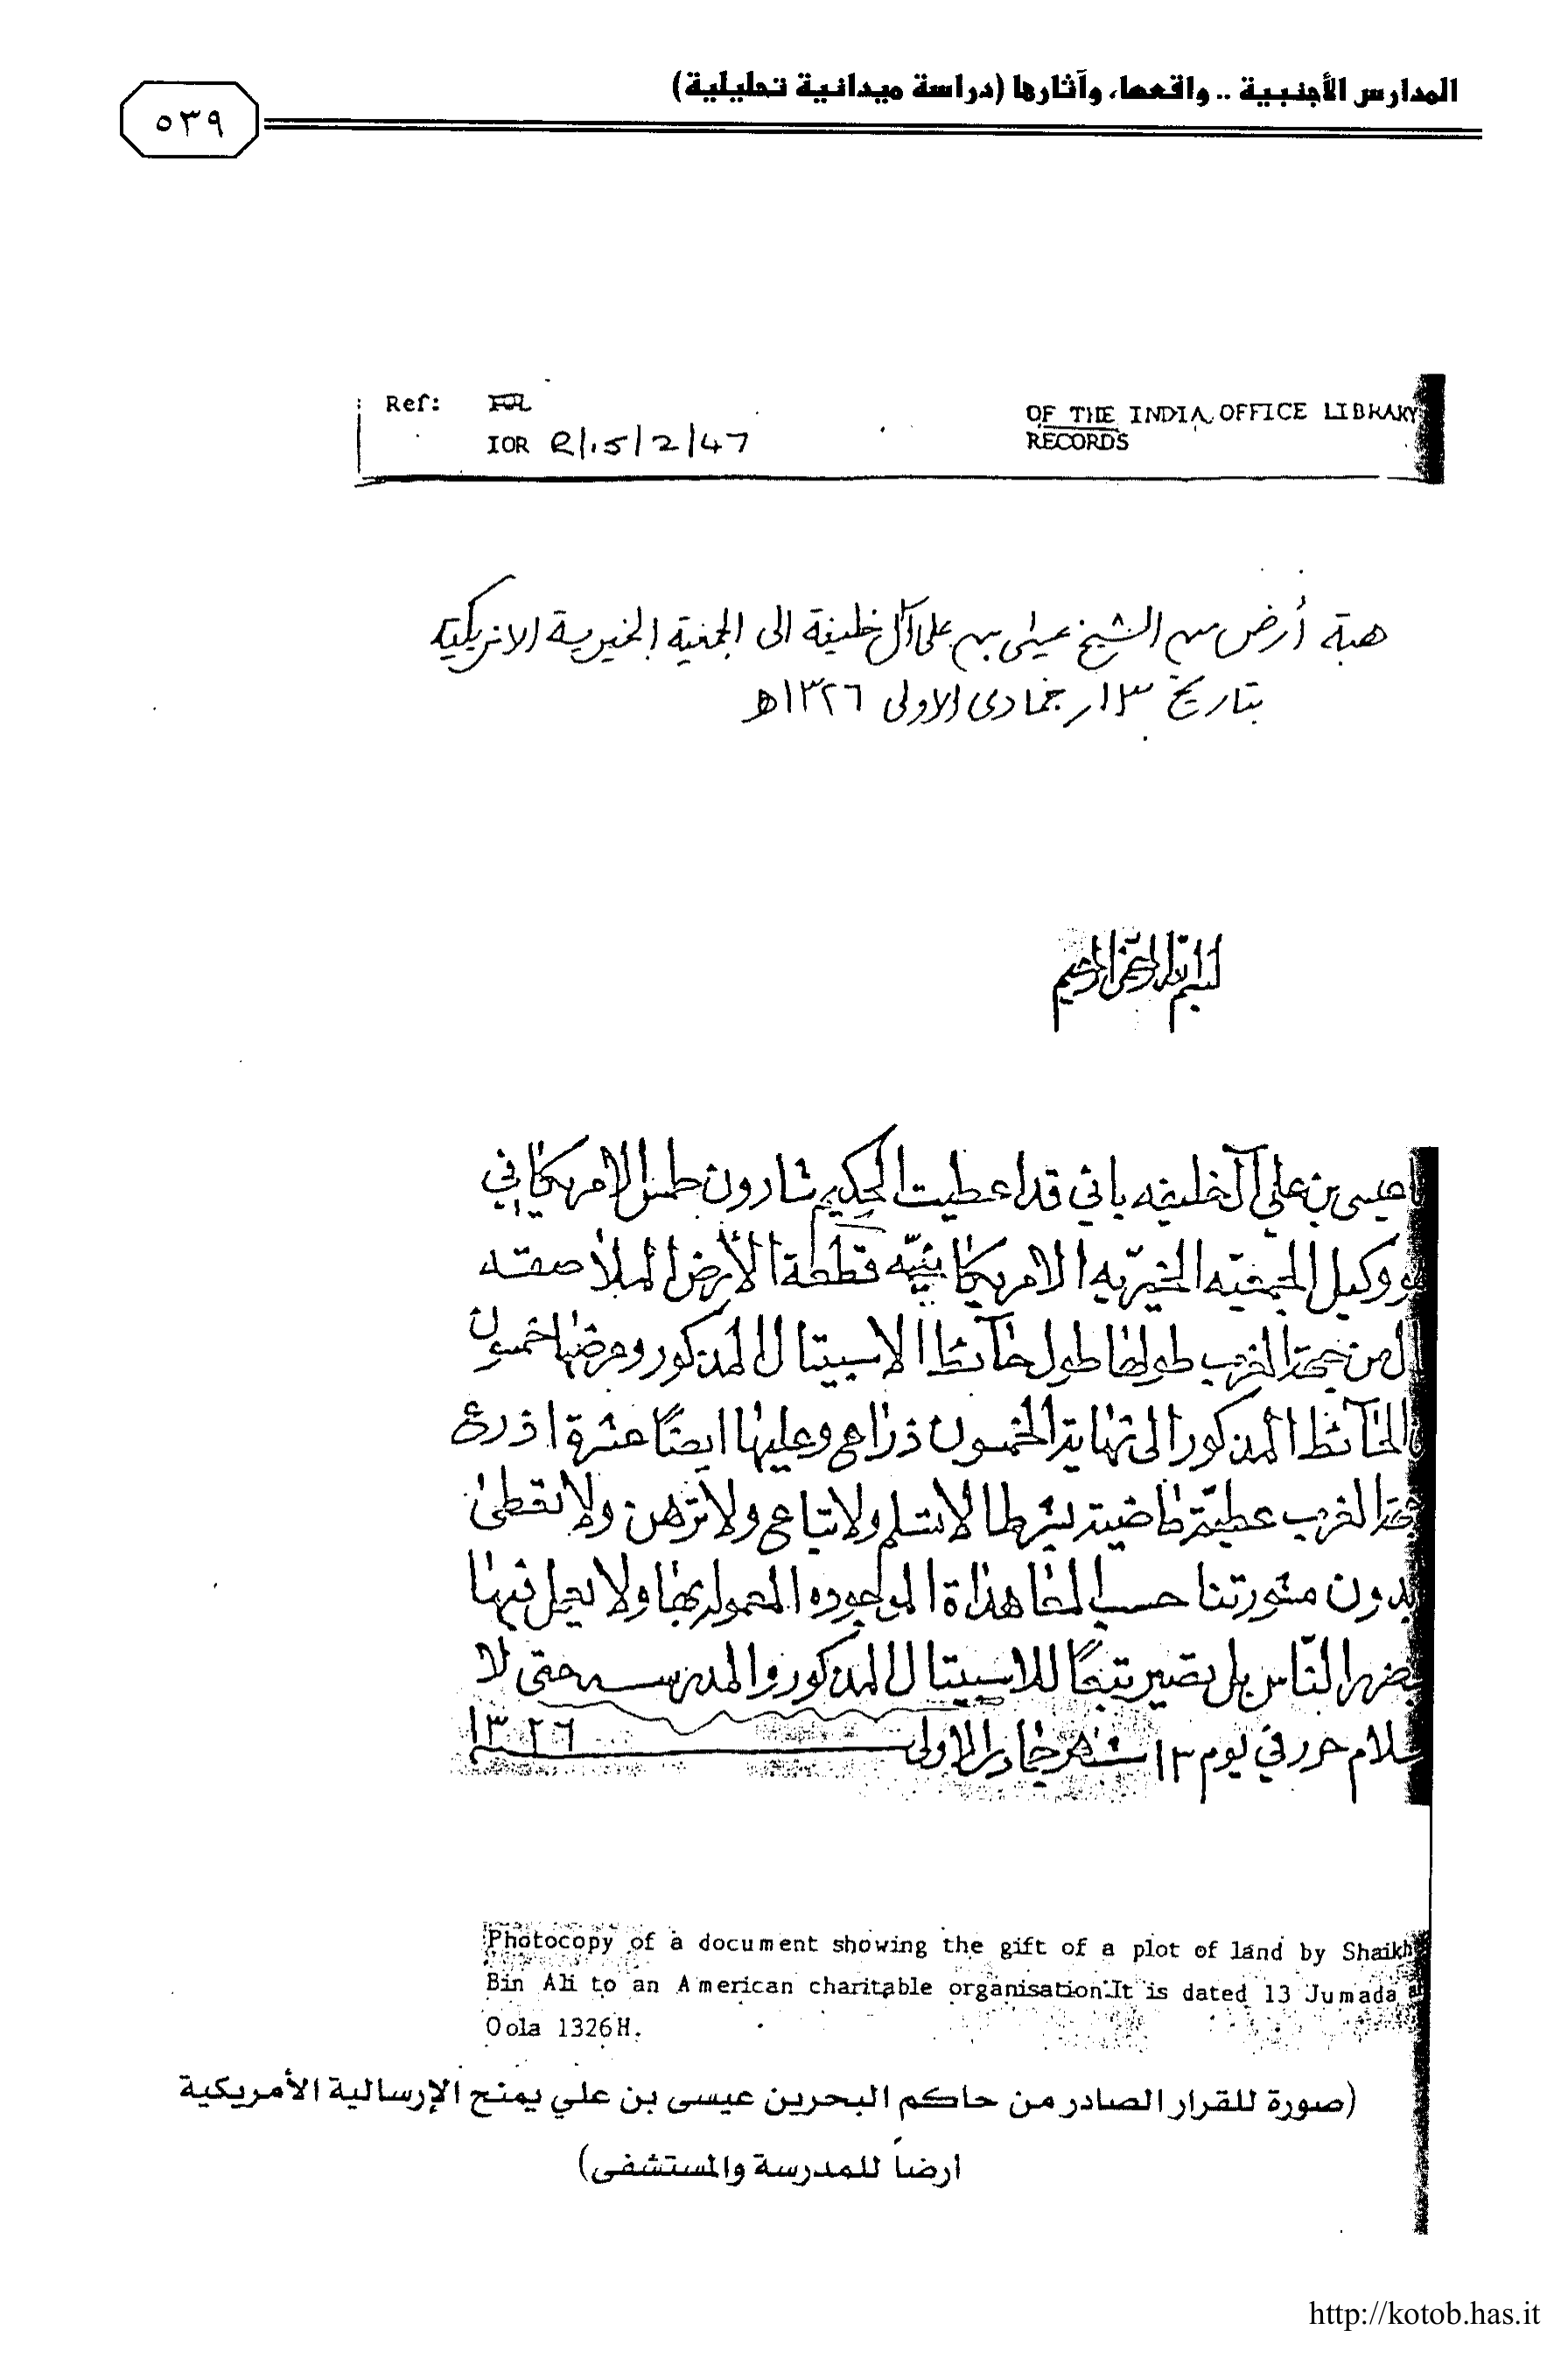 المدارس الأجنبية .. واقعها، وآثارها (دراسة ميدانية تحليلية)
٥٣٩
Ref:
IOR R/15/2/47
OF THE INDIA OFFICE LIBRARY
RECORDS
هبة أرض من الشيخ عيسى بن علي آل خليفة الى الجمعية الخيرية الامريكية
بتاريخ ١٣ر جمادى الاولى ١٣٢٦ھ
بسم الله الرحمن الرحيم
عيسى بن علي آل خليفه باني قد اعطيت الحكيم شارون طمس الامريكاني
ووكيل الجمعيه الخيريه الامريكانيّه قطعة الأرض الملاصقه
من جهة الغرب طولها طول حآئط الاسبيتال المذكور وعرضها خمسون
الحآئط المذكور الى نهاية الخمسون ذراع وعليها ايضًا عشرة اذرع
الغرب عطيّة ماضية بشرط الا تسلم ولا تباع ولا ترهن ولا تعطى
بدون مشورتنا حسب المعاهداة الموجوده المعمول بها ولا يعمل فيها
النّاس بل تصير تبعًا للاسبيتال المذكور والمدرسه حتى لا
حرر في يوم ١٣ شهر جماد الاولى ١٣٢٦
Photocopy of a document showing the gift of a plot of land by Shaikh
Bin Ali to an American charitable organisation. It is dated 13 Jumada al
Oola 1326H.
(صورة للقرار الصادر من حاكم البحرين عيسى بن علي يمنح الإرسالية الأمريكية
ارضاً للمدرسة والمستشفى)
http://kotob.has.it